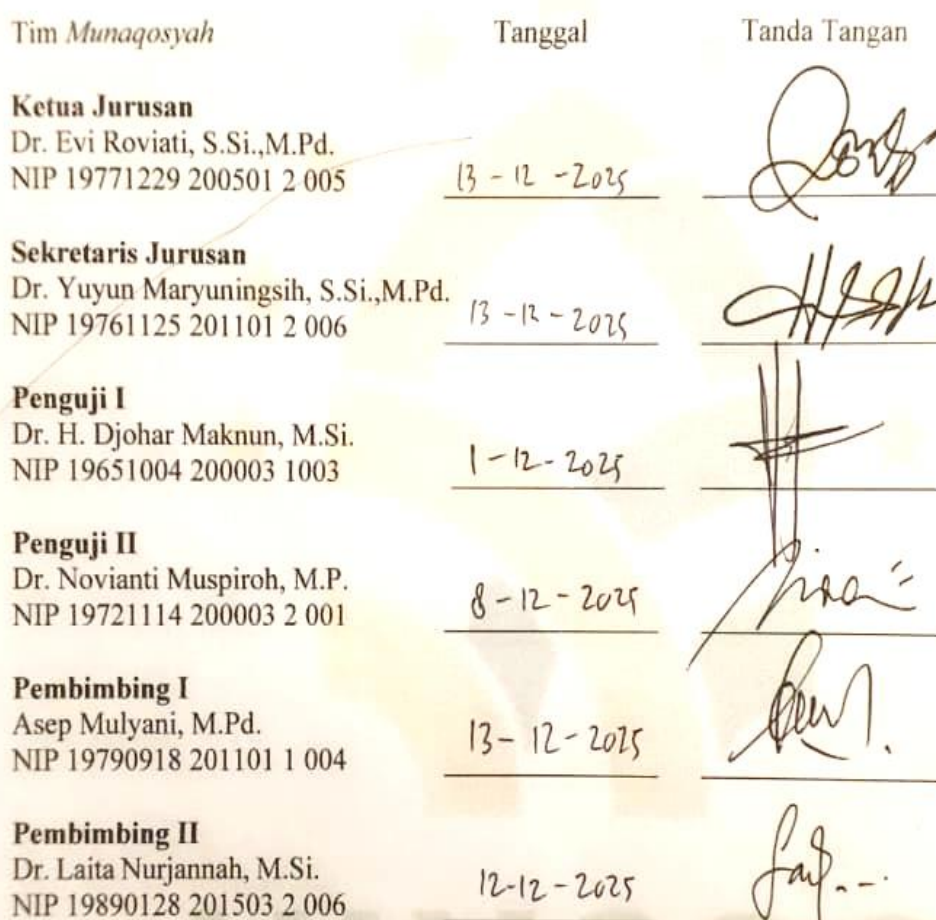 Tim Munaqosyah Tanggal Tanda Tangan
Ketua Jurusan
Dr. Evi Roviati, S.Si.,M.Pd.
NIP 19771229 200501 2 005 13 - 12 - 2025
Sekretaris Jurusan
Dr. Yuyun Maryuningsih, S.Si.,M.Pd.
NIP 19761125 201101 2 006 13 - 12 - 2025
Penguji I
Dr. H. Djohar Maknun, M.Si.
NIP 19651004 200003 1003 1 - 12 - 2025
Penguji II
Dr. Novianti Muspiroh, M.P.
NIP 19721114 200003 2 001 8 - 12 - 2025
Pembimbing I
Asep Mulyani, M.Pd.
NIP 19790918 201101 1 004 13 - 12 - 2025
Pembimbing II
Dr. Laita Nurjannah, M.Si.
NIP 19890128 201503 2 006 12-12 - 2025